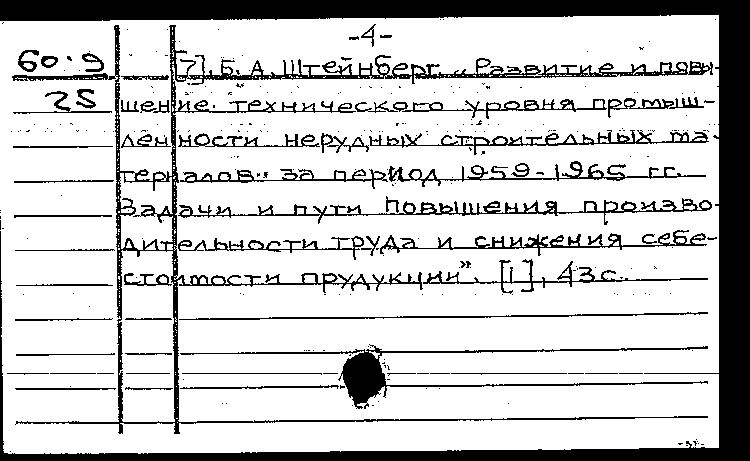 -4-
60·9 [7]. Б. А. Штейнберг. „Развитие и повы-
25 шение технического уровня промыш-
ленности нерудных строительных ма-
териалов" за период 1959-1965 гг.
Задачи и пути повышения произво-
дительности труда и снижения себе-
стоимости прудукции". [1], 43с.